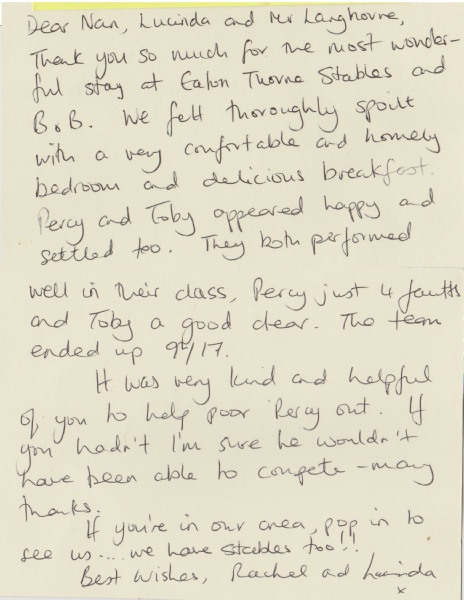 Dear Nan, Lucinda and Mr Langhorne,
Thank you so much for the most wonder-
ful stay at Eaton Thorne Stables and
B.B. We felt thoroughly spoilt
with a very comfortable and homely
bedroom and delicious breakfast.
Percy and Toby appeared happy and
settled too. They both performed
well in their class, Percy just 4 faults
and Toby a good clear. The team
ended up 9th/17.
It was very kind and helpful
of you to help poor Percy out. If
you hadn't I'm sure he wouldn't
have been able to compete - many
thanks.
If you're in our area, pop in to
see us.... we have stables too!!
Best Wishes, Rachel and Lucinda
x